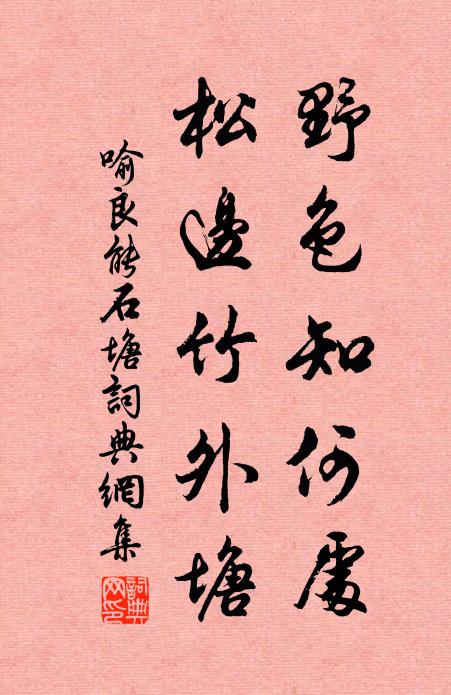 野色知何處
松邊竹外塘
喻良能石塘詞典網集
詞典網印